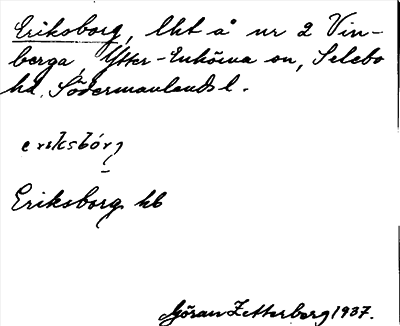 Eriksborg, lht å nr 2 Vin-
berga, Ytter-Enhörna sn, Selebo
hd, Södermanlands l.
eriksbórg
Eriksborg hb
Göran Zetterberg 1937.